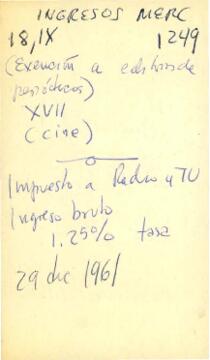 INGRESOS MERC
18, IX 1249
(Exención a editoras de
periódicos)
XVII
(cine)
Impuesto a Radio y TV
Ingreso bruto
1.25% tasa
29 dic 1961